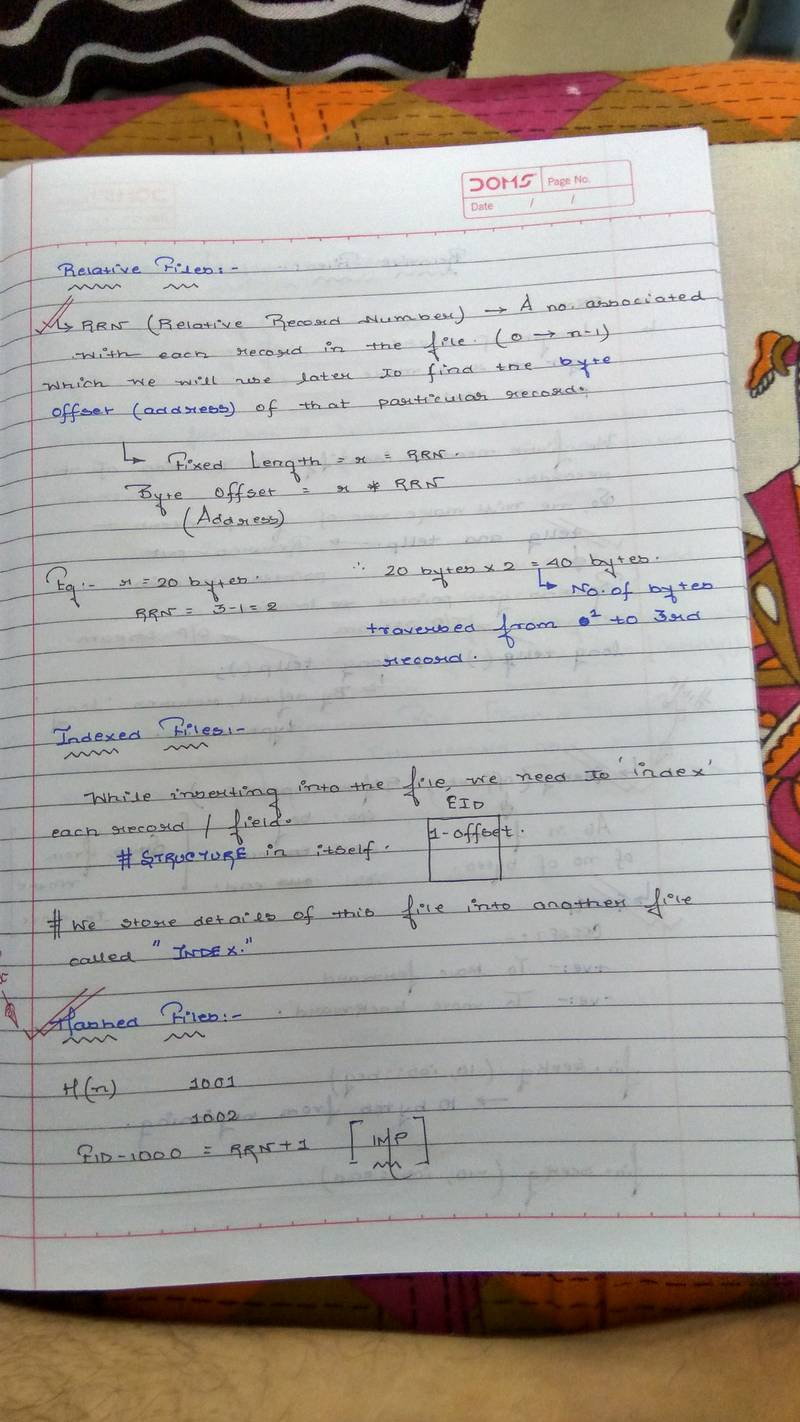 DOMS Page No.
Date / /
Relative Files:-
↳ RRN (Relative Record Number) → A no. associated
with each record in the file. (0 → n-1)
which we will use later to find the byte
offset (address) of that particular record.
↳ Fixed Length = r = RRN.
Byte offset = r * RRN
(Address)
Eg:- r = 20 bytes. ∴ 20 bytes x 2 = 40 bytes.
RRN = 3-1 = 2 ↳ No. of bytes
traversed from 1 to 3rd
record.
Indexed Files:-
While inserting into the file, we need to 'index'
each record / field. EID
# STRUCTURE in itself. 1-offset.
# We store details of this file into another file
called "INDEX."
Hashed Files:-
H(n) 1001
1002
EID-1000 = RRN+1 [IMP]